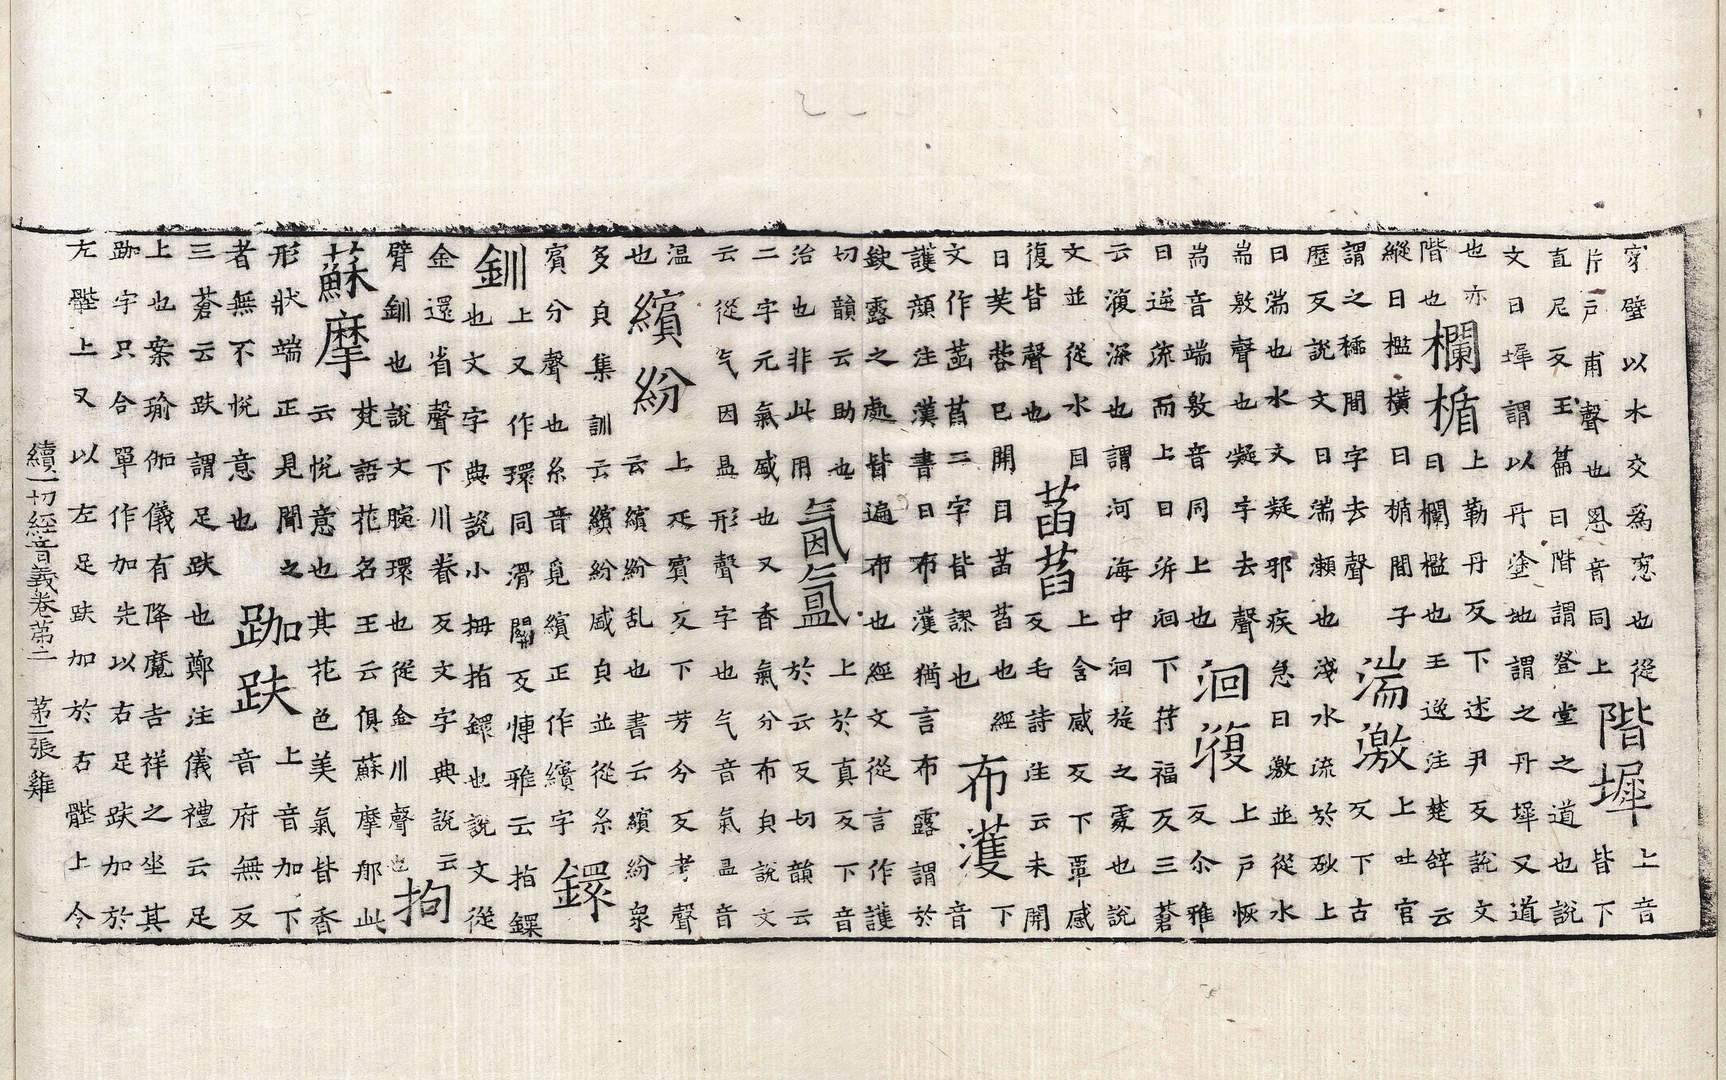 穿壁以木交爲窓也從
片戶甫聲也恩音同上
階墀
上音
皆下
直尼反玉篇曰階謂登堂之道也說
文曰墀謂以丹塗地謂之丹墀又道
也亦
階也
欄楯
上勒丹反下述尹反說文
曰欄檻也王逸注楚辭云
縱曰檻橫曰楯間子
謂之櫺間字去聲
湍激
上吐官
反下古
歷反說文曰湍瀨也淺水流於砂上
曰湍也水文凝邪疾急曰激並從水
耑敫聲也凝字去聲
耑音端敫音同上也
洄澓
上戶恢
反尒雅
曰逆流而上曰泝洄下符福反三蒼
云澓深也謂河海中洄旋之處也說
文並從水囬
復皆聲也
菡萏
上含感反下覃感
反也毛詩注云未開
曰芙蓉已開曰菡萏也經
文作菡萏二字皆謬也
布濩
下
音
護顔注漢書曰布濩猶言布露謂於
欽露之處皆遍布也經文從言作護
切韻云助也
治也非此用
氤氳
上於真反下音
於云反切韻云
二字元氣盛也又香氣分布皃說文
云從气因昷形聲字也气音氣昷音
温
也
繽紛
上疋賓反下芳分反考聲
云繽紛乱也書云繽紛衆
多皃集訓云繽紛盛皃並從糸
賓分聲也糸音覓繽正作繽字
鐶
釧
上又作環同滑關反博雅云指鐶
也文字典說小拇指鐶也說文從
金還省聲下川眷反文字典說云
臂釧也說文腕環也從金川聲也
拘
蘇摩
梵語花名王云俱蘇摩郍此
云悅意也其花色美氣皆香
形狀端正見聞之
者無不悅意也
跏趺
上音加下
音府無反
三蒼云趺謂足趺也鄭注儀禮云足
上也案瑜伽儀有降魔吉祥之坐其
跏字只合單作加先以右足趺加於
左髀上又以左足趺加於右髀上令
續一切經音義卷第二　第二張　雞